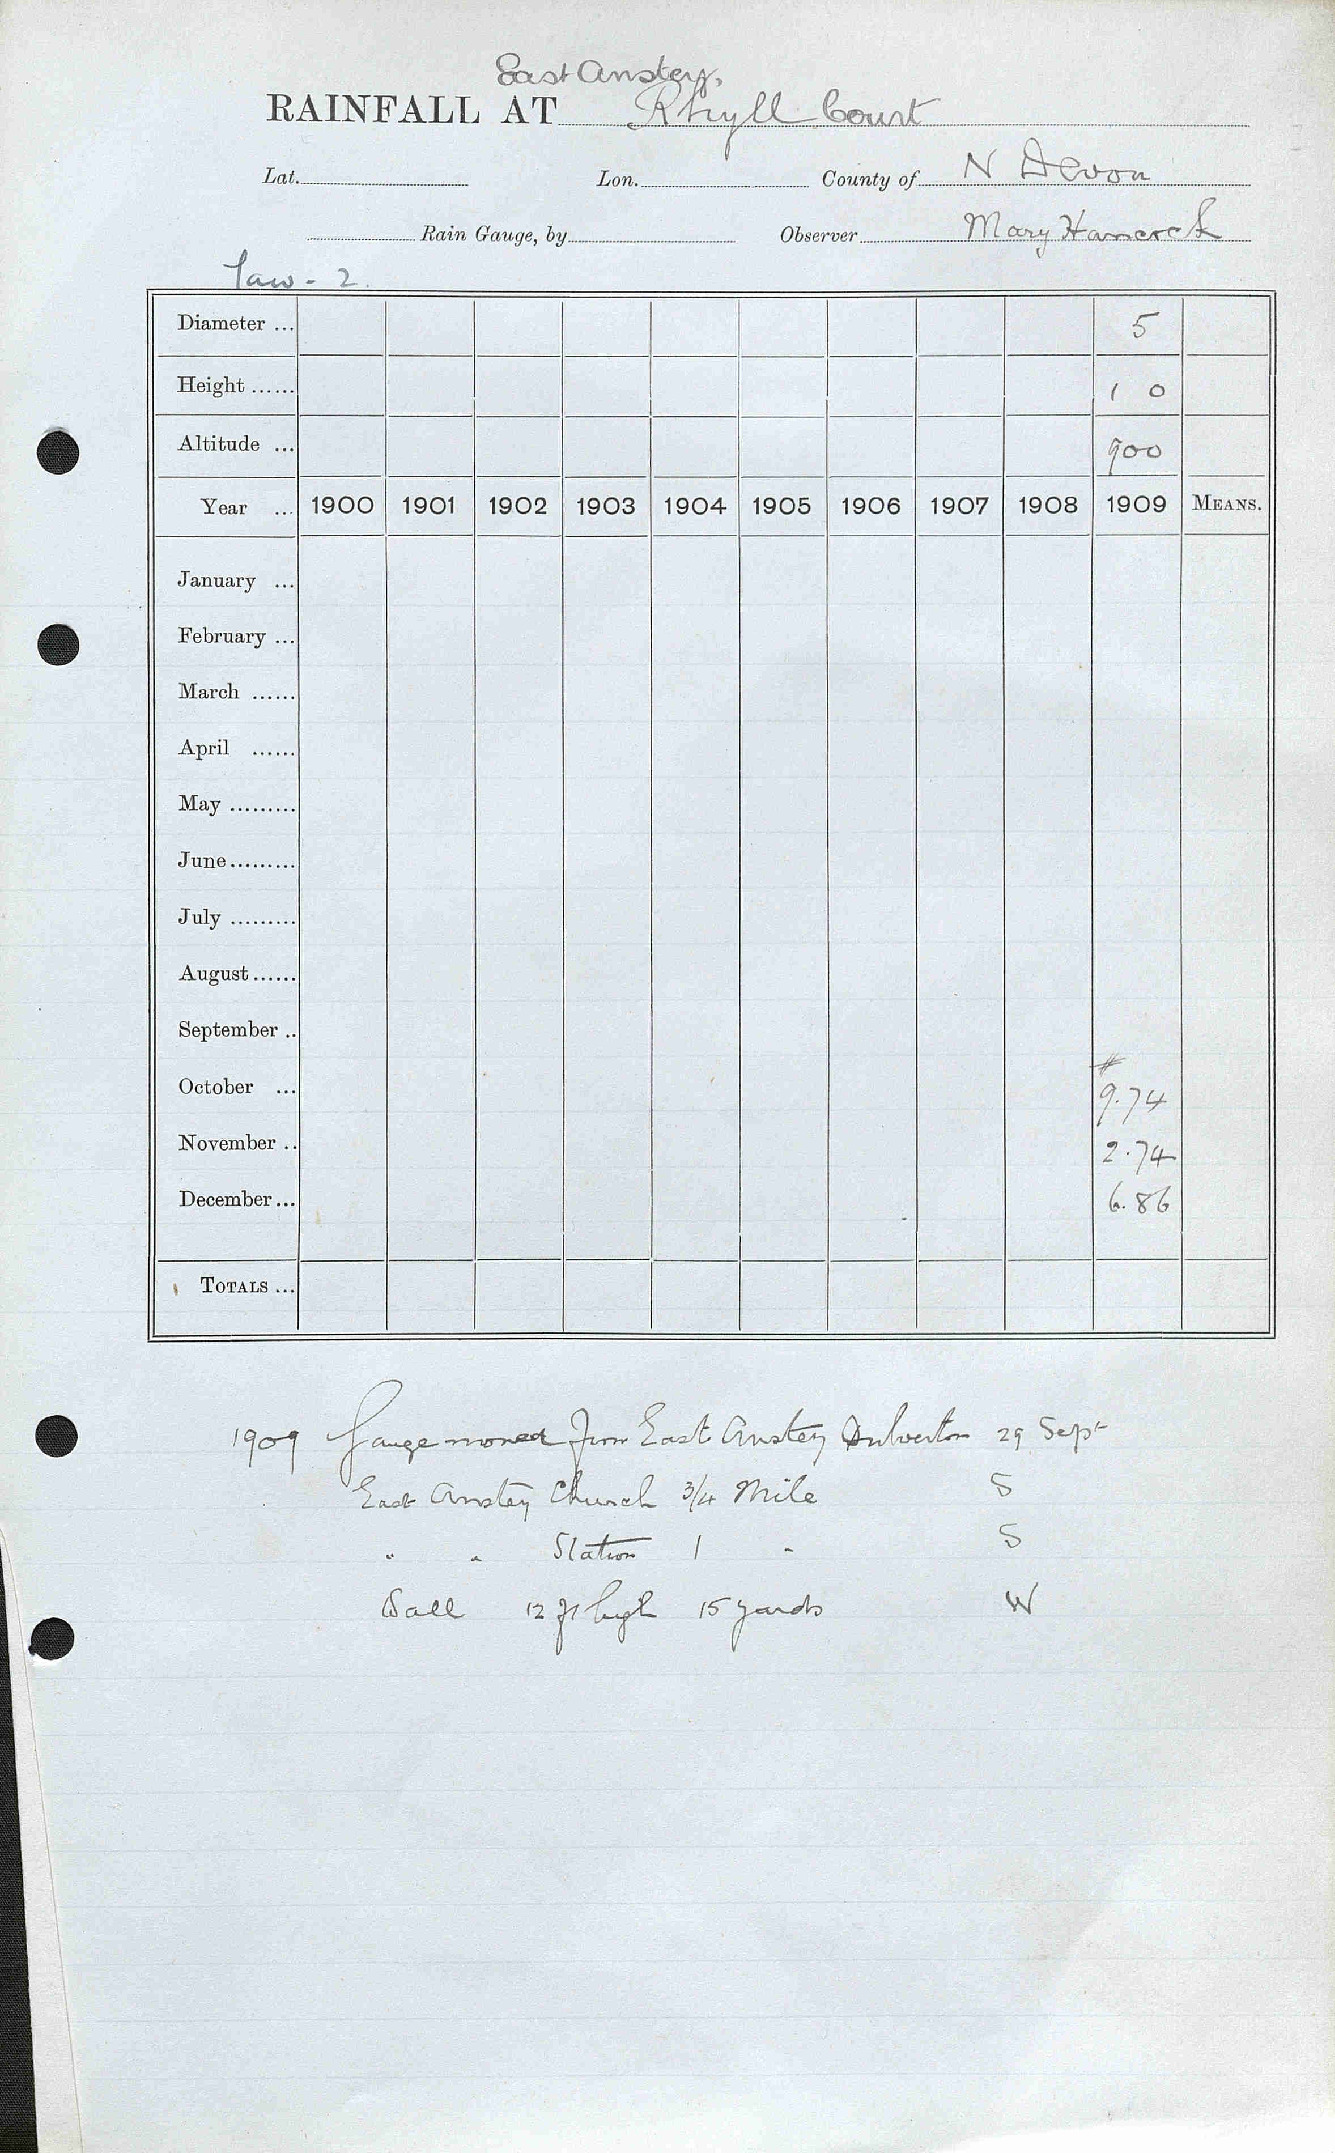 East Anstey,
RAINFALL AT Rhyll Court
Lat. Lon. County of N Devon
Rain Gauge, by Observer Mary Hancock
Taw - 2.
Diameter ... 5
Height ...... 1 0
Altitude ... 900
Year ... 1900 1901 1902 1903 1904 1905 1906 1907 1908 1909 MEANS.
January ...
February ...
March ......
April ......
May .........
June.........
July .........
August......
September ..
#
October ... 9.74
November .. 2.74
December... 6.86
TOTALS ...
1909 Gauge moved from East Anstey Dulverton 29 Sept
East Anstey Church 3/4 Mile S
" " Station 1 " S
Wall 12 ft high 15 yards W